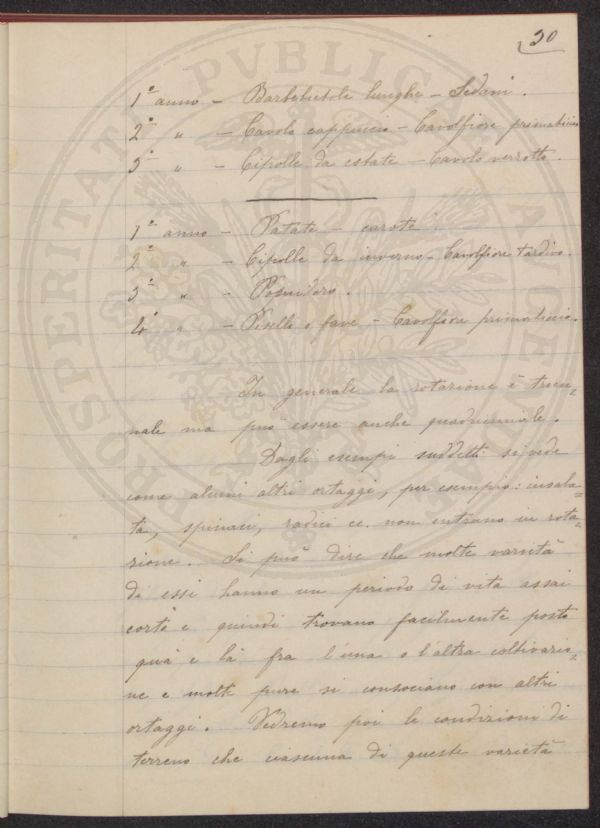 20
1º anno - Barbabietole lunghe - Sedani.
2º " - Cavolo cappuccio - Cavolfiore primaticcio
3º " - Cipolle da estate - Cavolo verzotto.
1º anno - Patate - carote.
2º " - Cipolle da inverno - Cavolfiore tardivo.
3º " - Pomidoro.
4º " - Piselli o fave - Cavolfiore primaticcio.
In generale la rotazione è trien=
nale ma può essere anche quadriennale.
Dagli esempi suddetti si vede
come alcuni altri ortaggi, per esempio: insala=
ta, spinaci, radici ec. non entrano in rota=
zione. Si può dire che molte varietà
di essi hanno un periodo di vita assai
corto e quindi trovano facilmente posto
quà e là fra l'una o l'altra coltivazio=
ne e molte pure si consociano con altri
ortaggi. Vedremo poi le condizioni di
terreno che ciascuna di queste varietà
PROSPERITATI PVBLICAE AVGENDAE